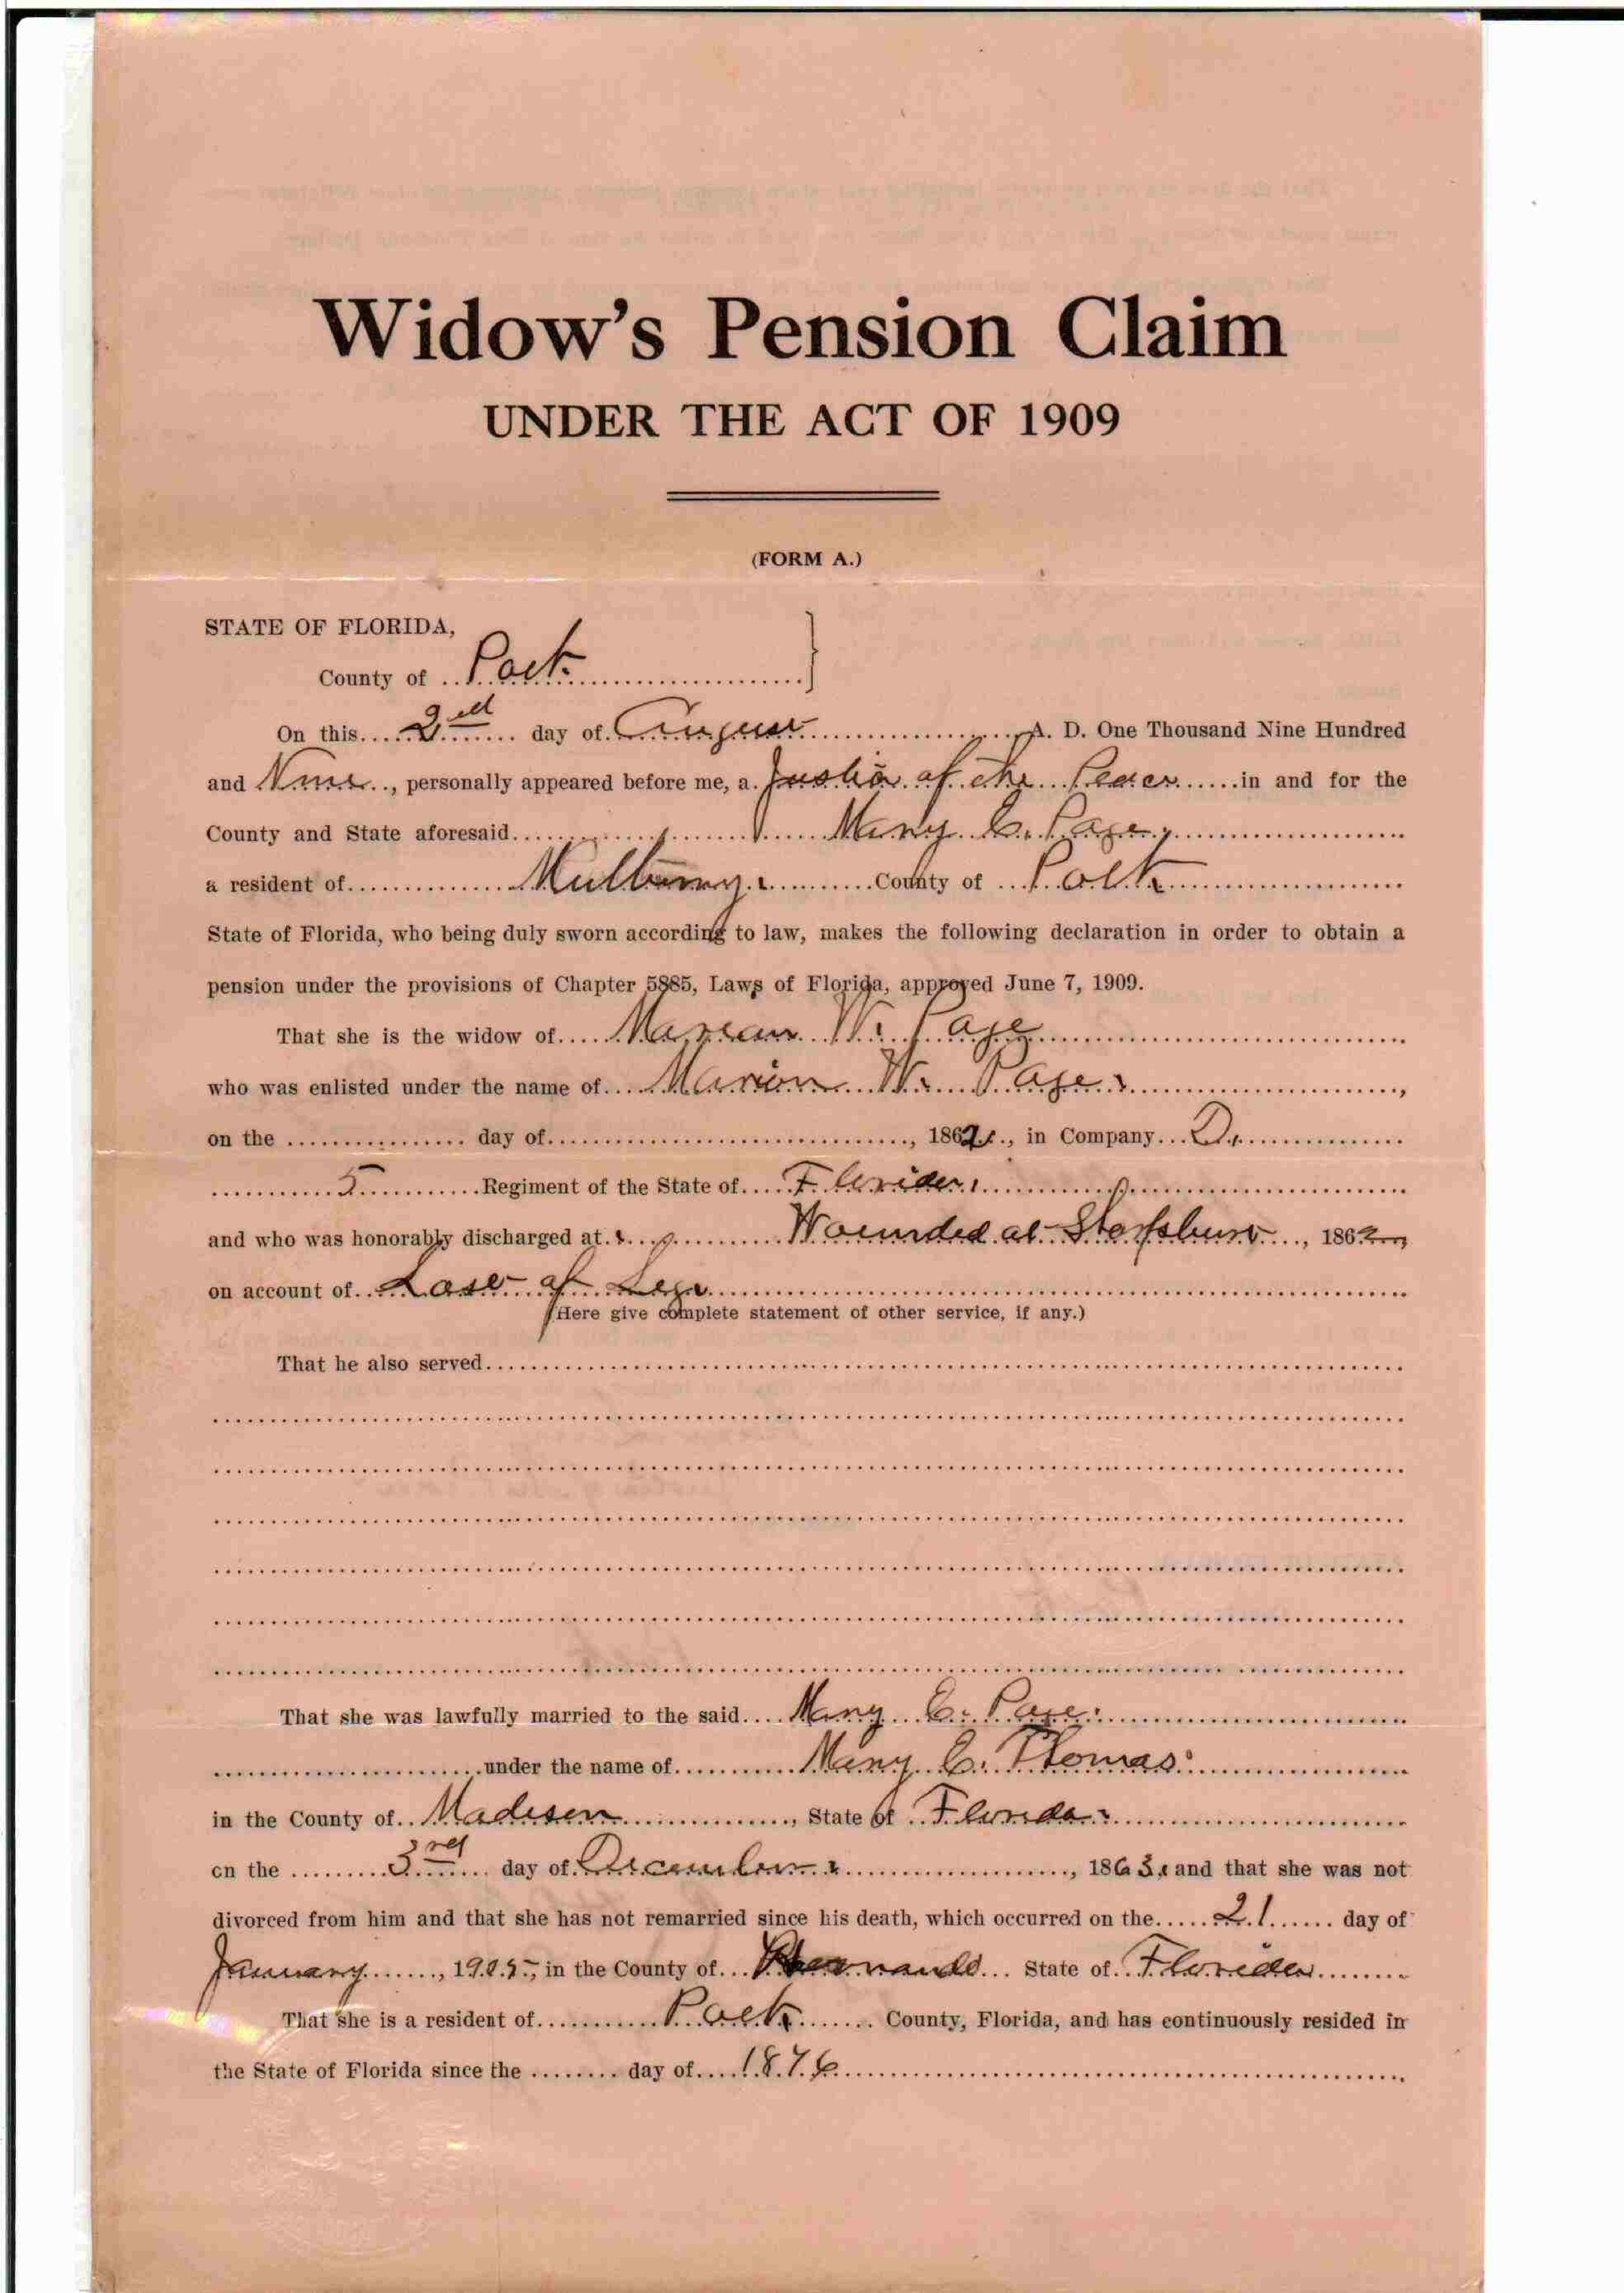 Widow's Pension Claim
UNDER THE ACT OF 1909
(FORM A.)
STATE OF FLORIDA,
County of Polk
On this 2nd day of August A. D. One Thousand Nine Hundred
and Nine, personally appeared before me, a Justice of the Peace in and for the
County and State aforesaid Mary E. Page,
a resident of Mulberry County of Polk
State of Florida, who being duly sworn according to law, makes the following declaration in order to obtain a
pension under the provisions of Chapter 5885, Laws of Florida, approved June 7, 1909.
That she is the widow of Marion W. Page
who was enlisted under the name of Marion W. Page,
on the day of, 1862, in Company D.
5 Regiment of the State of Florida
and who was honorably discharged at Wounded at, 1862
on account of Lost of Leg
(Here give complete statement of other service, if any.)
That he also served
That she was lawfully married to the said Mary E. Page.
under the name of Mary E. Thomas
in the County of Madison, State of Florida
on the 3rd day of December, 1863, and that she was not
divorced from him and that she has not remarried since his death, which occurred on the 21 day of
January, 1905, in the County of Hernando State of Florida
That she is a resident of Polk County, Florida, and has continuously resided in
the State of Florida since the day of 1876